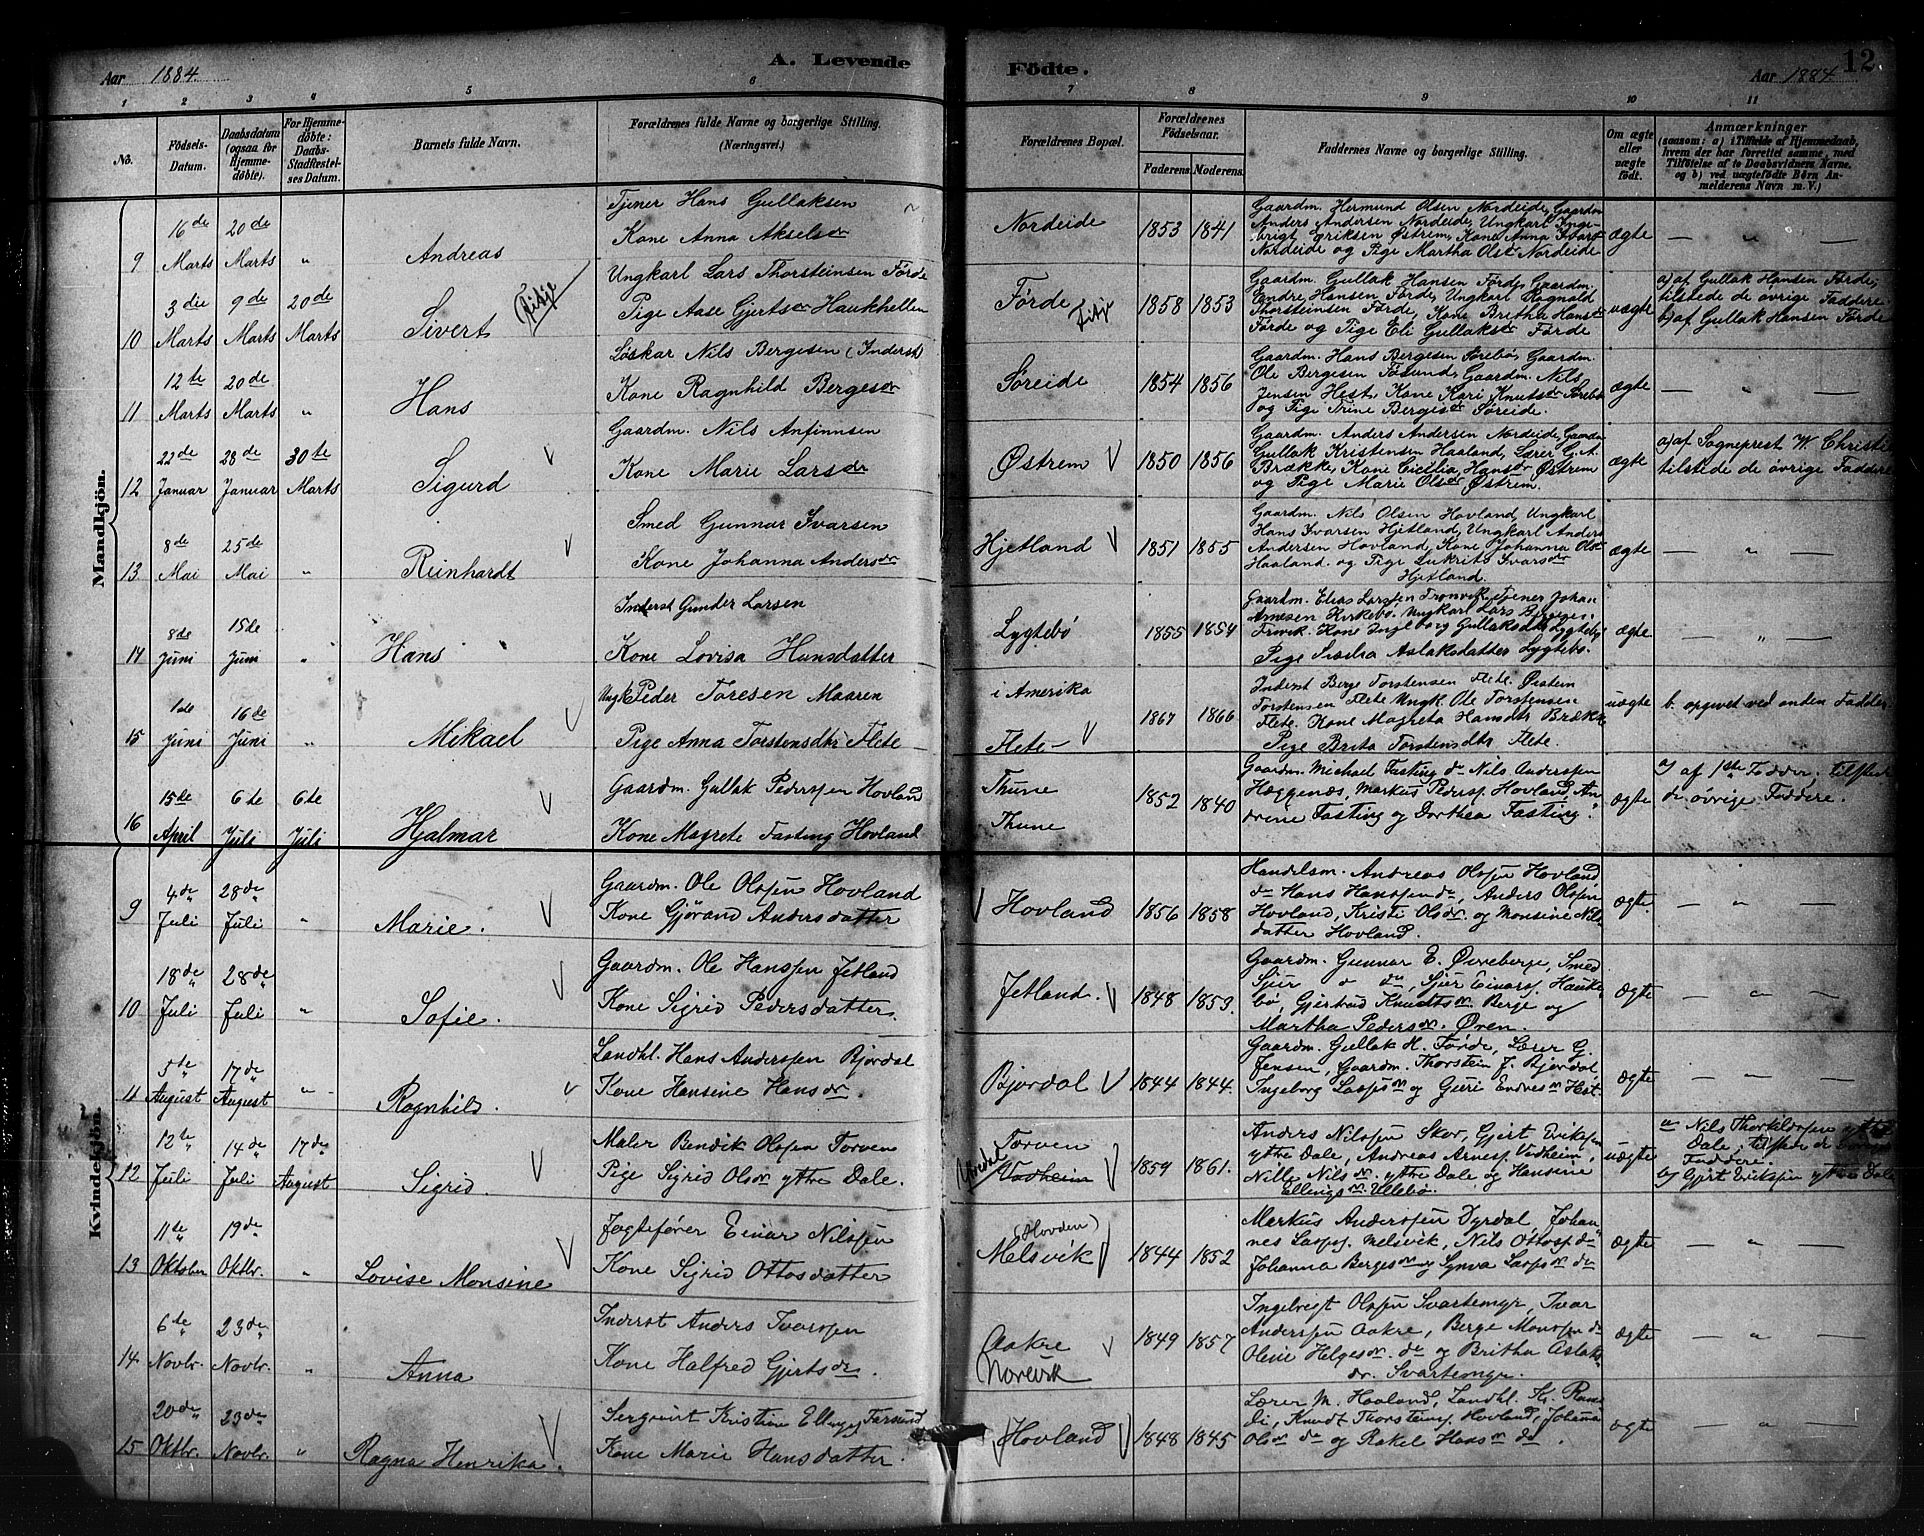 Aar 1884.
A. Levende
Födte.
Aar 1884.
12
1 2 3 4 5 6 7 8 9 10 11
No.
Födsels-Datum.
Daabsdatum (ogsaa for Hjemmedöbte).
For Hjemmedöbte: Daabs-Stadfæstelses Datum.
Barnets fulde Navn.
Forældrenes fulde Navne og borgerlige Stilling. (Næringsvei.)
Forældrenes Bopæl.
Forældrenes Födselsaar.
Faderens. Moderens.
Faddernes Navne og borgerlige Stilling.
Om ægte eller uægte født.
Anmærkninger
(saasom: a) i Tilfælde af Hjemmedaab, hvem der har forrettet samme, med Tilföielse af to Daabsvidners Navne, og b) ved uægtefödte Börn Anmelderens Navn m. V.)
Mandkjön.
9
16de Marts
20de Marts
"
Andreas
Tjener Hans Gullaksen
Kone Anna Akselsdr
Nordeide
1853 1841
Gaardm. Hermund Olsen Nordeide, Gaardm
Anders Andersen Nordeide, Ungkarl Inge-
brigt Eriksen Østrem, Kone Anna Ivarsdr
Nordeide og Pige Martha Olsdr Nordeide
ægte
— " —
10
3die Marts
9de Marts
20de Marts
Sivert
Ungkarl Lars Thorsteinsen Förde
Pige Aase Gjertsdr Haukhellen
Förde
1858 1853
Gaardm. Gullak Hansen Förde, Gaardm.
Endre Hansen Förde, Ungkarl Rognald
Thorsteinsen Förde, Kone Britha Hansdr
Förde og Pige Eli Gullaksdr Förde
uægte
a) af Gullak Hansen Förde,
tilstede de övrige Faddere
b) af Gullak Hansen Förde
11
12te Marts
20de Marts
"
Hans
Løskar Nils Bergesen (Inderst)
Kone Ragnhild Bergesdr
Søreide
1854 1856
Gaardm. Hans Bergesen Sørebø, Gaardm.
Ole Bergesen Føsund, Gaardm. Nils
Jensen Hest, Kone Kari Knutsdr Sørebø
og Pige Trine Bergesdr Søreide.
ægte
— " —
12
22de Januar
28de Januar
30te Marts
Sigurd
Gaardm. Nils Anfinnsen
Kone Marie Larsdr
Østrem
1850 1856
Gaardm. Anders Andersen Nordeide, Gaardm
Gullak Kristensen Haaland, Lærer G. A.
Brække, Kone Cicilia Hansdr Østrem
og Pige Marie Olsdr Østrem.
ægte
a) af Sogneprest W Christi
tilstede de övrige Faddere
13
8de Mai
25de Mai
"
Reinhardt
Smed Gunnar Ivarsen
Kone Johanna Andersdr
Hjetland
1851 1855
Gaardm. Nils Olsen Hovland, Ungkarl
Hans Ivarsen Hjetland, Ungkarl Anders
Andersen Hovland, Kone Johanna Olsdr
Haaland og Pige Lukrits Ivarsdr
Hjetland.
ægte
— " —
14
8de Juni
15de Juni
"
Hans
Inderst Gunder Larsen
Kone Lovisa Hansdatter
Lygtebö
1855 1854
Gaardm. Elias Larssen Tronvik, Tjener Johan
Arnesen Kirkebø, Ungkarl Lars
Kone Ingeborg Gullaksdtr Lygtebö
Pige Aslaksdatter Lygtebö.
ægte
— " —
15
1ste Juni
16de Juni
"
Mikael
Ungk. Peder Toresen Maaren
Pige Anna Torstensdtr Flete
i Amerika
Flete
1867 1866
Inderst Berge Torstensen Flete. Øistein
Torstensen Flete Ungk. Ole Torstensen
Flete. Kone Magreta Hansdtr Brække
Pige Brita Torstensdtr Flete.
uægte
b. opgivet ved anden Fadder.
16
15de April
6te Juli
6te Juli
Hjalmar
Gaardm. Gullak Pederssen Hovland
Kone Magrete Fasting Hovland
Thune
Thune
1852 1840
Gaardm. Michael Fasting do Nils Anderssen
Hæggenæs, Markus Pederss. Hovland, An-
drine Fasting og Dorthea Fasting.
ægte
a) af 1ste Fadder. tilstede
de övrige Faddere.
Kvindekjön.
9
4de Juli
28de Juli
"
Marie.
Gaardm. Ole Olssen Hovland
Kone Gjørand Andersdatter
Hovland
1856 1858
Handelsm. Andreas Olssen Hovland
do Hans Hanssen do, Anders Olssen
Hovland, Kristi Olsdr. og Monsine Nils-
datter Hovland.
ægte
— " —
10
18de Juli
28de Juli
"
Sofie.
Gaardm. Ole Hanssen Jetland
Kone Sigrid Pedersdatter.
Jetland.
1848 1853.
Gaardm. Gunnar E. Övreberge, Smed
Sjur do do, Sjur Einarss. Hauke-
bö, Gjertrud Knudtsdr. Berge og
Martha Pedersdr. Øren.
ægte
— " —
11
5te August
17de August
"
Ragnhild.
Landhl. Hans Anderssen Bjordal
Kone Hansine Hansdr.
Bjordal
1844 1844.
Gaardm. Gullak H. Förde, Lærer G.
Jensen, Gaardm. Thorstein J. Bjordal,
Ingeborg Larsdr og Guri Endresdr Hest.
ægte
— " —
12
12te Juli
14de Juli
17de August
Sigrid.
Maler Bendik Olssen Torven
Pige Sigrid Olsdr ytre Dale.
Torven
Vadheim
1859 1861.
Anders Nilssen Skor, Gjert Erikssen
ytre Dale, Andreas Arness. Vadheim,
Nille Nilsdr. ytre Dale og Hansine
Ellingsdr. Ullebö.
uægte
a) Nils Thorkildssen ytre
Dale, tilstede de övrige
Faddere.
b) Gjert Erikssen ytre Dale
13
11te Oktober
19de Oktbr.
"
Lovise Monsine
Jagtefører Einar Nilssen
Kone Sigrid Ottosdatter
(Hovden)
Melsvik
1844 1852
Markus Anderssen Dyrdal, Johan-
nes Larss. Melsvik, Nils Ottoss. do
Johanna Bergesdr og Synva Larsdr do
ægte
— " —
14
6te Novbr.
23de Novbr.
"
Anna
Inderst Anders Ivarssen
Kone Halfred Gjertsdr.
Aakre
Norevik
1849 1857
Ingebrigt Olssen Svartemyr, Ivar
Anderssen Aakre, Berge Monssen do
Oline Helgesdr. do og Britha Aslaks-
dr. Svartemyr.
ægte
— " —
15
20de Oktbr.
23de Novbr.
"
Ragna Henrika.
Sergeant Kristian Ellingss. Farsund
Kone Marie Hansdatter.
Hovland
1848 1845
Lærer M. Hovland, Landhl. Kr. Ran-
di, Knudt Thorsteinss. Hovland, Johana
Olsdr do og Rakel Hansdr do.
ægte
— " —